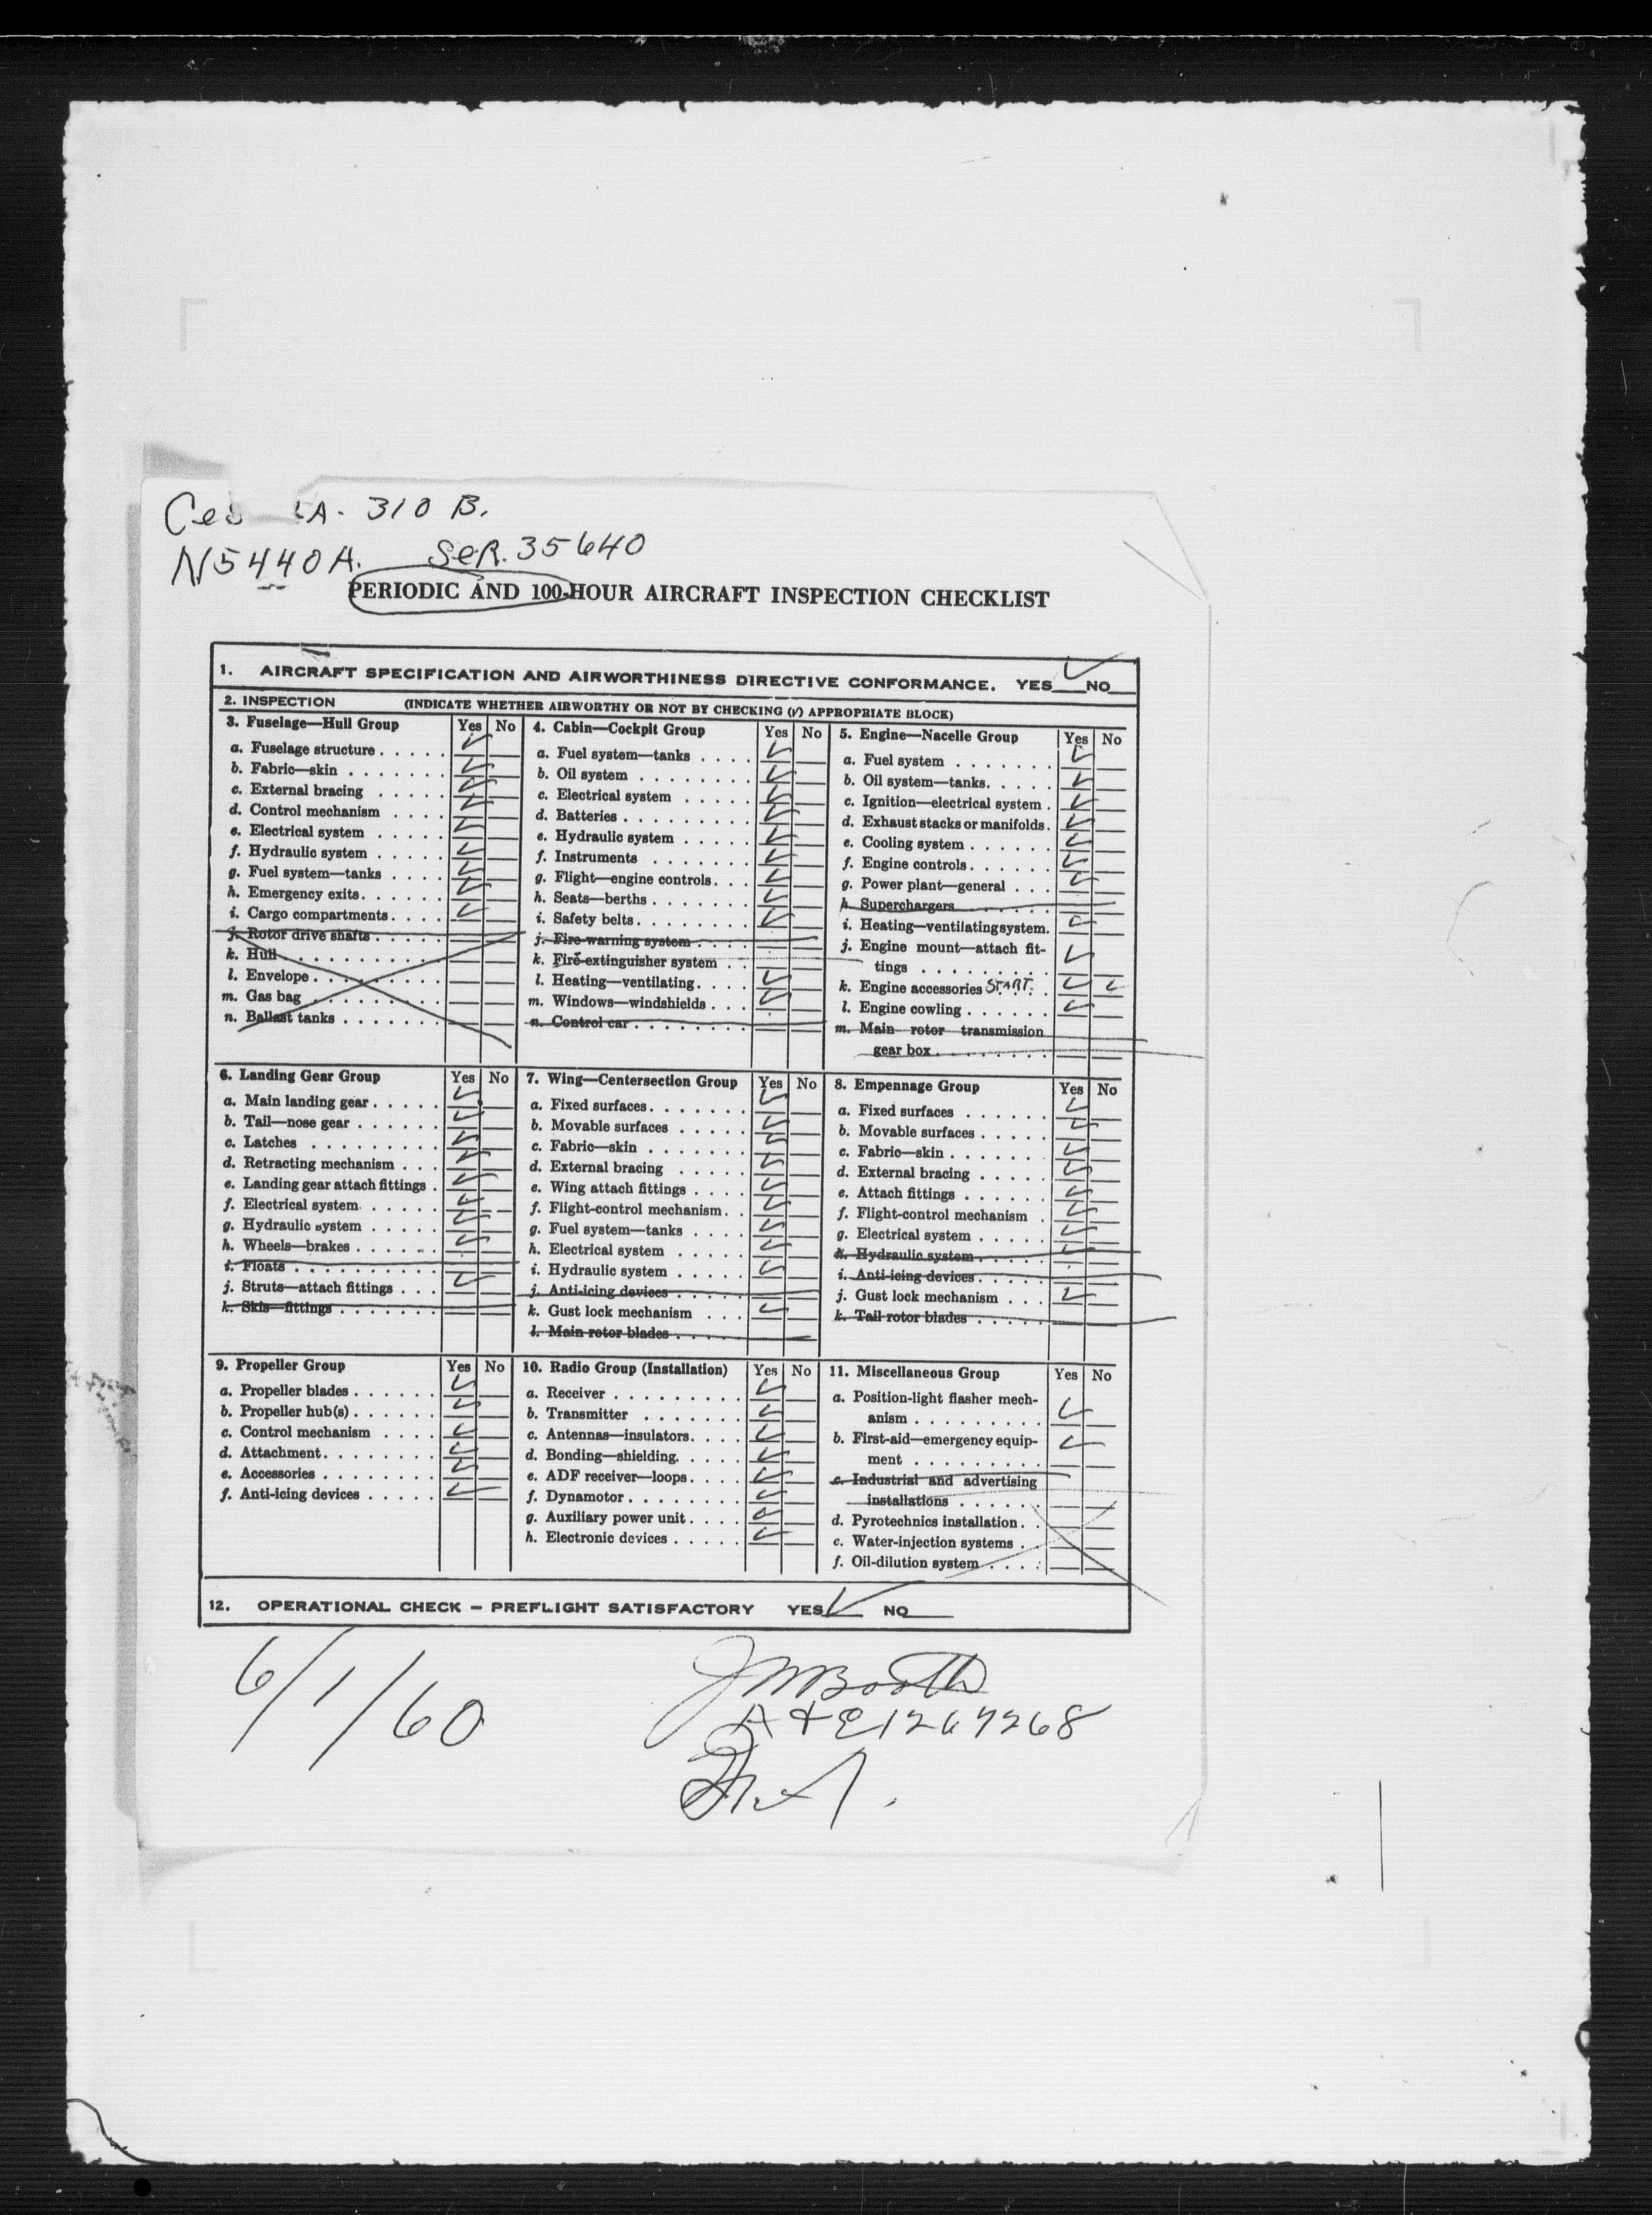 310 B.
N5440A. SER. 35640
PERIODIC AND 100-HOUR AIRCRAFT INSPECTION CHECKLIST
1. AIRCRAFT SPECIFICATION AND AIRWORTHINESS DIRECTIVE CONFORMANCE. YES ✓ NO
2. INSPECTION (INDICATE WHETHER AIRWORTHY OR NOT BY CHECKING (✓) APPROPRIATE BLOCK)
3. Fuselage—Hull Group Yes No
a. Fuselage structure ✓
b. Fabric—skin ✓
c. External bracing ✓
d. Control mechanism ✓
e. Electrical system ✓
f. Hydraulic system ✓
g. Fuel system—tanks ✓
h. Emergency exits ✓
i. Cargo compartments ✓
j. Rotor drive shafts
k. Hull
l. Envelope
m. Gas bag
n. Ballast tanks
4. Cabin—Cockpit Group Yes No
a. Fuel system—tanks ✓
b. Oil system ✓
c. Electrical system ✓
d. Batteries ✓
e. Hydraulic system ✓
f. Instruments ✓
g. Flight—engine controls ✓
h. Seats—berths ✓
i. Safety belts ✓
j. Fire warning system
k. Fire-extinguisher system
l. Heating—ventilating ✓
m. Windows—windshields ✓
n. Control car
5. Engine—Nacelle Group Yes No
a. Fuel system ✓
b. Oil system—tanks ✓
c. Ignition—electrical system ✓
d. Exhaust stacks or manifolds ✓
e. Cooling system ✓
f. Engine controls ✓
g. Power plant—general ✓
h. Superchargers
i. Heating—ventilating system ✓
j. Engine mount—attach fit-
tings ✓
k. Engine accessories START. ✓ ✓
l. Engine cowling ✓
m. Main rotor transmission
gear box
6. Landing Gear Group Yes No
a. Main landing gear ✓
b. Tail—nose gear ✓
c. Latches ✓
d. Retracting mechanism ✓
e. Landing gear attach fittings ✓
f. Electrical system ✓
g. Hydraulic system ✓
h. Wheels—brakes ✓
i. Floats
j. Struts—attach fittings ✓
k. Skis—fittings
7. Wing—Centersection Group Yes No
a. Fixed surfaces ✓
b. Movable surfaces ✓
c. Fabric—skin ✓
d. External bracing ✓
e. Wing attach fittings ✓
f. Flight-control mechanism ✓
g. Fuel system—tanks ✓
h. Electrical system ✓
i. Hydraulic system ✓
j. Anti-icing devices
k. Gust lock mechanism ✓
l. Main rotor blades
8. Empennage Group Yes No
a. Fixed surfaces ✓
b. Movable surfaces ✓
c. Fabric—skin ✓
d. External bracing ✓
e. Attach fittings ✓
f. Flight-control mechanism ✓
g. Electrical system ✓
h. Hydraulic system ✓
i. Anti-icing devices
j. Gust lock mechanism ✓
k. Tail rotor blades
9. Propeller Group Yes No
a. Propeller blades ✓
b. Propeller hub(s) ✓
c. Control mechanism ✓
d. Attachment ✓
e. Accessories ✓
f. Anti-icing devices ✓
10. Radio Group (Installation) Yes No
a. Receiver ✓
b. Transmitter ✓
c. Antennas—insulators ✓
d. Bonding—shielding ✓
e. ADF receiver—loops ✓
f. Dynamotor ✓
g. Auxiliary power unit ✓
h. Electronic devices ✓
11. Miscellaneous Group Yes No
a. Position-light flasher mech-
anism ✓
b. First-aid—emergency equip-
ment ✓
c. Industrial and advertising
installations
d. Pyrotechnics installation
c. Water-injection systems
f. Oil-dilution system
12. OPERATIONAL CHECK – PREFLIGHT SATISFACTORY YES ✓ NO
6/1/60
JM Booth
A + E 1267268